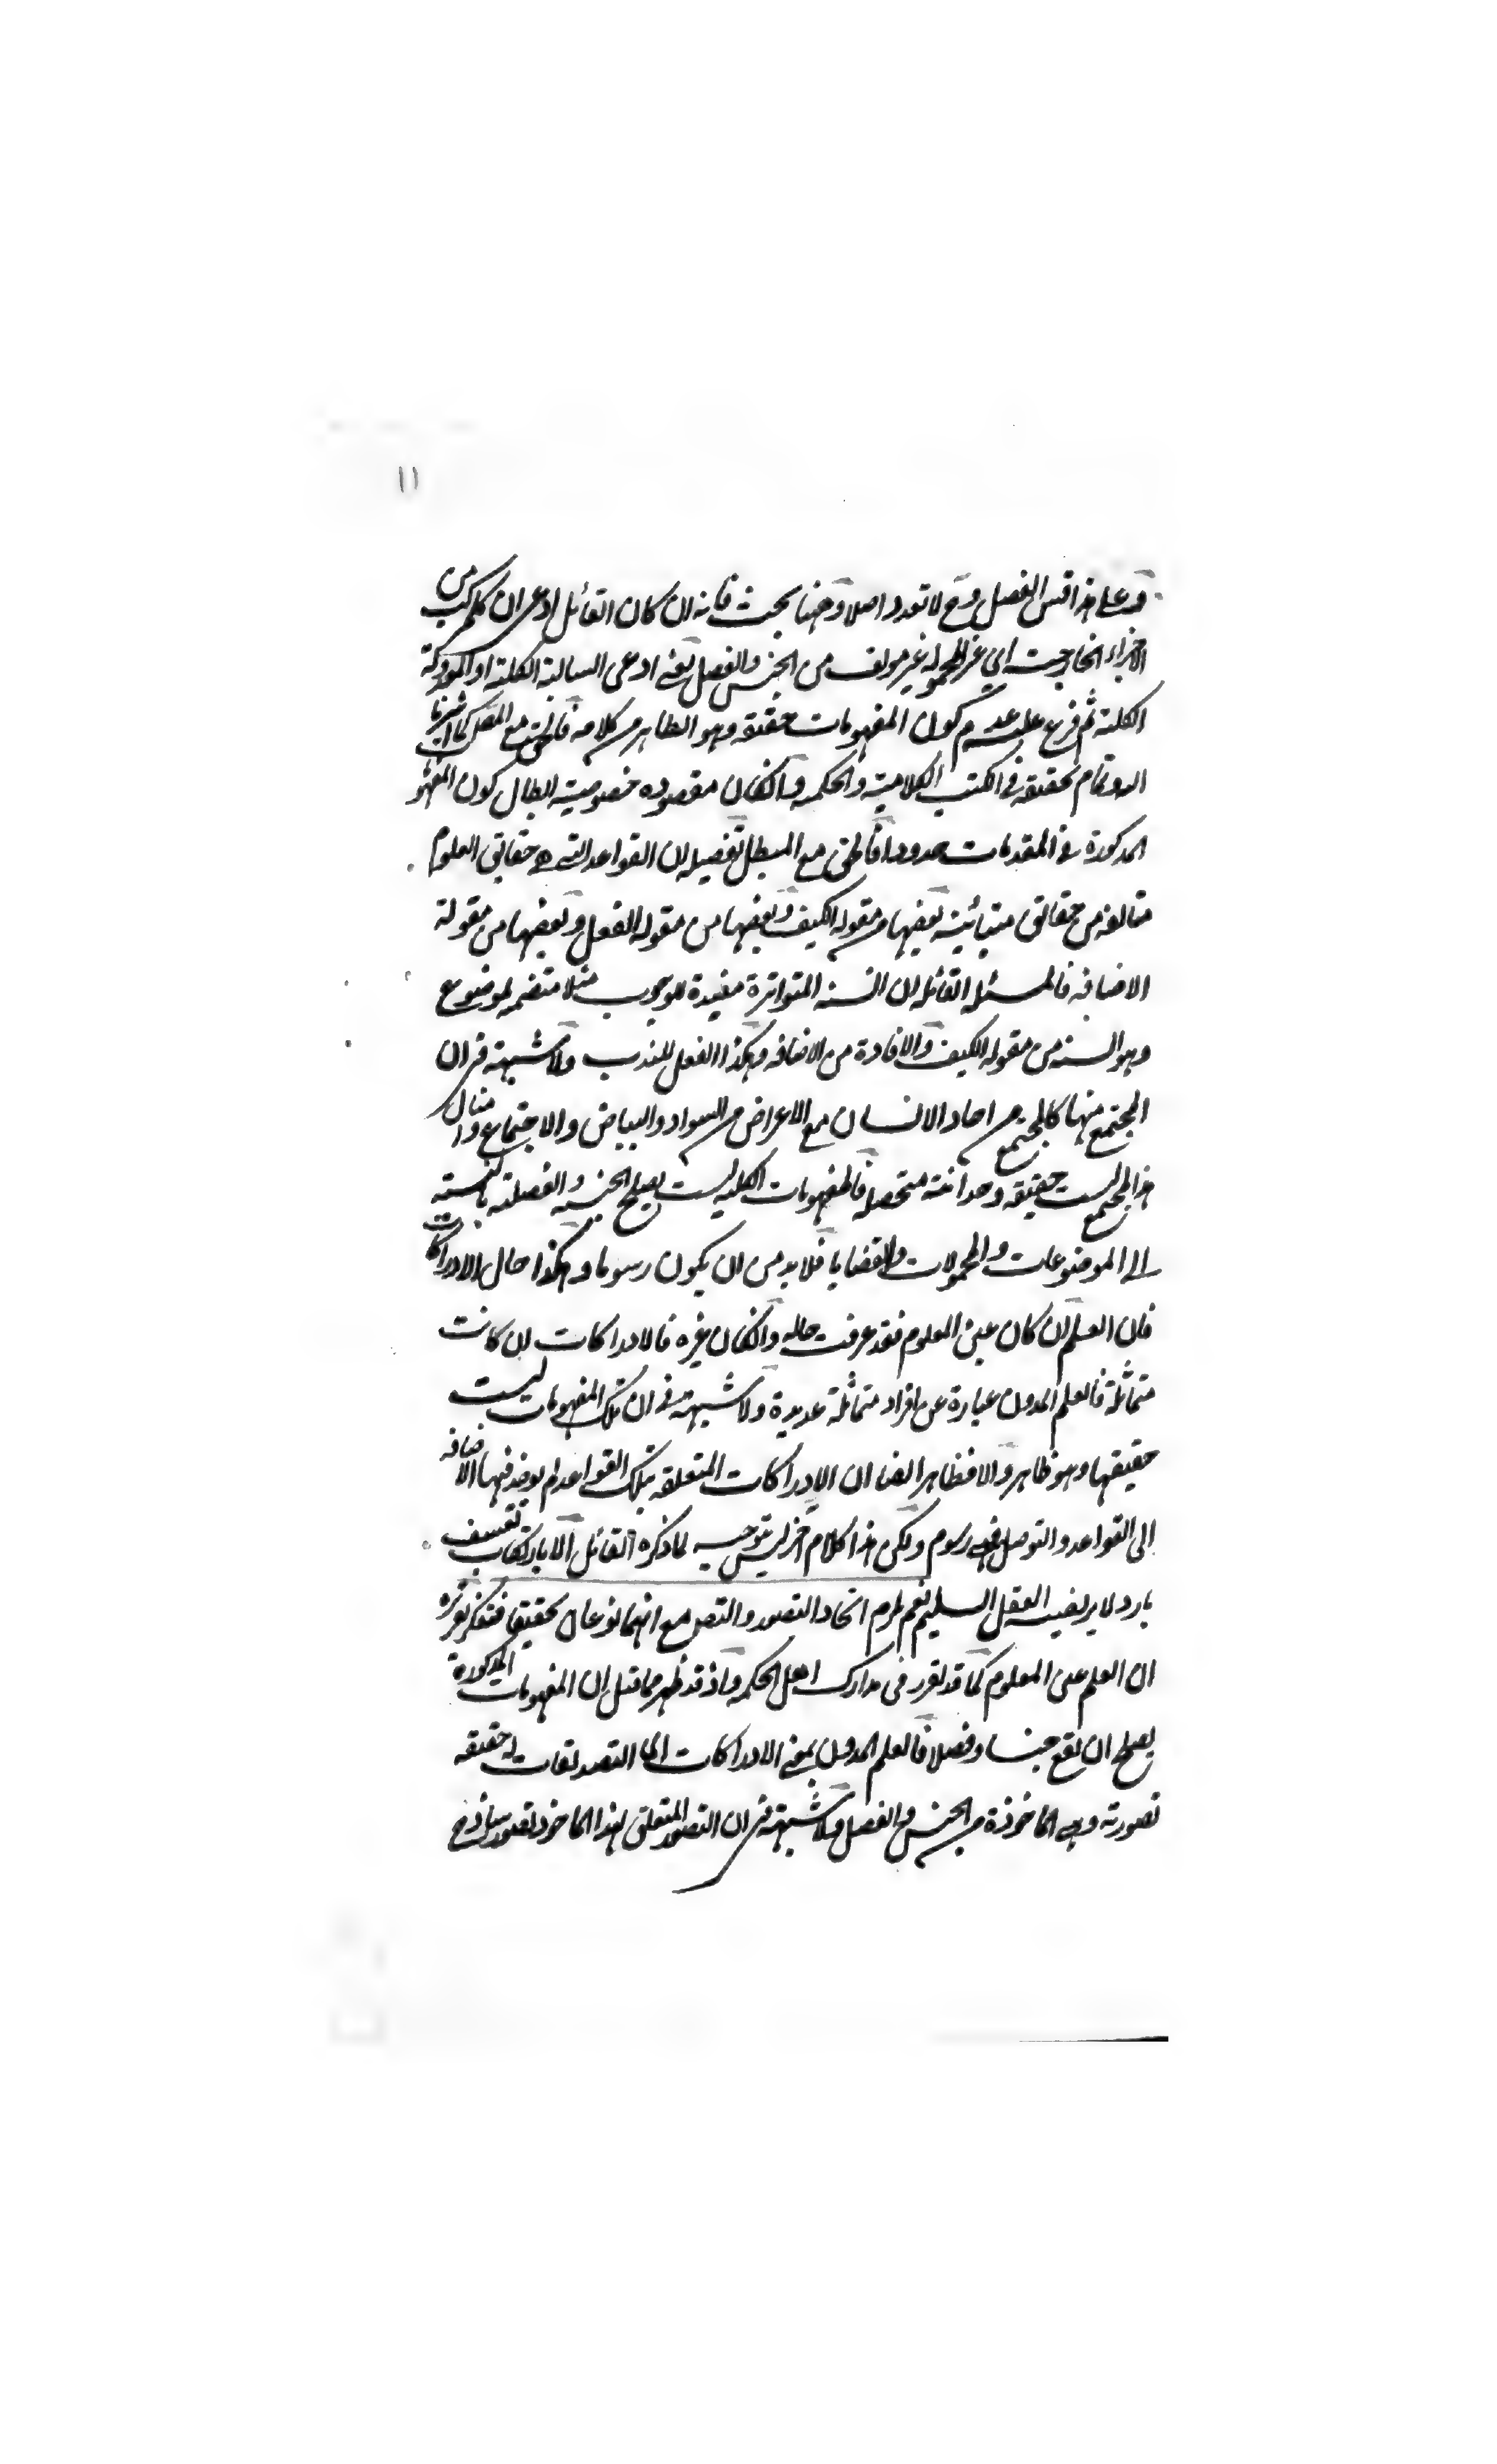 ١١
وعلى هذا قس الفصل وح لا تعدد اصلا وههنا بحث فانه ان كان القائل ادعى ان كل مركب من
الاجزاء الخارجية اي غير المحمولة غير مولف من الجنس والفصل يعني ادعى السالبة الكلية او
الكلية ثم فرع عليه عدم كون المفهومات حقيقة وهو الظاهر من كلامه فالحق مع كما اشرنا
اليه وتمام تحقيقه في الكتب الكلامية والحكمية وان كان مقصوده خصوصية ابطال كون المفهو
المذكورة في المقدمات حدودا فالحق مع المبطل تفصيله ان القواعد التي هي حقائق العلوم
متالفة من حقائق متبائنة بعضها من مقولة الكيف وبعضها من مقولة الفعل وبعضها من مقولة
الاضافة فالمسئلة القائلة ان السنة المتواترة مفيدة للوجوب مثلا متضمنة لموضوع
وهو السنة من مقولة الكيف والافادة من الاضافة وهكذا الفعل للندب ولا شبهة في ان
المجتمع منها كالمجتمع من احاد الانسان مع الاعراض من السواد والبياض والاجتماع وامثال
هذا المجتمع ليست حقيقة وحدانية متحصلة فالمفهومات الكلية ليست يصلح الجنسية والفصلية بالنسبة
الى الموضوعات والمحمولات والقضايا فلا بد من ان يكون رسوما وهكذا حال الادراكات
فان العلم ان كان عين المعلوم فقد عرفت حاله وان كان غيره فالادراكات ان كانت
متماثلة فالعلم المدون عبارة عن افراد متماثلة عديدة ولا شبهة في ان تلك المفهومات ليست
حقيقتها وهو ظاهر والا فظاهر ايضا ان الادراكات المتعلقة بتلك القواعد لم يوخذ فيها الاضافة
الى القواعد والتوصل فهي رسوم ولكن هذا كلام اخر ليس بتوجيه لما ذكره القائل الا بارتكاب تعسف
بارد لا يرتضيه العقل السليم نعم يلزم اتحاد التصور والتص مع انهما نوعان تحقيقا
ان العلم عين المعلوم كما قد تقرر في مدارك اهل الحكمة واذ قد ظهر مما قبل ان المفهومات المذكورة
يصلح ان يقع جنسا وفصلا فالعلم المدون بمعنى الادراكات التصديقات له حقيقة
تصورية وهي الماخوذة من الجنس والفصل ولا شبهة في ان التصور المتعلق بهذا الماخوذ تصور ساذج